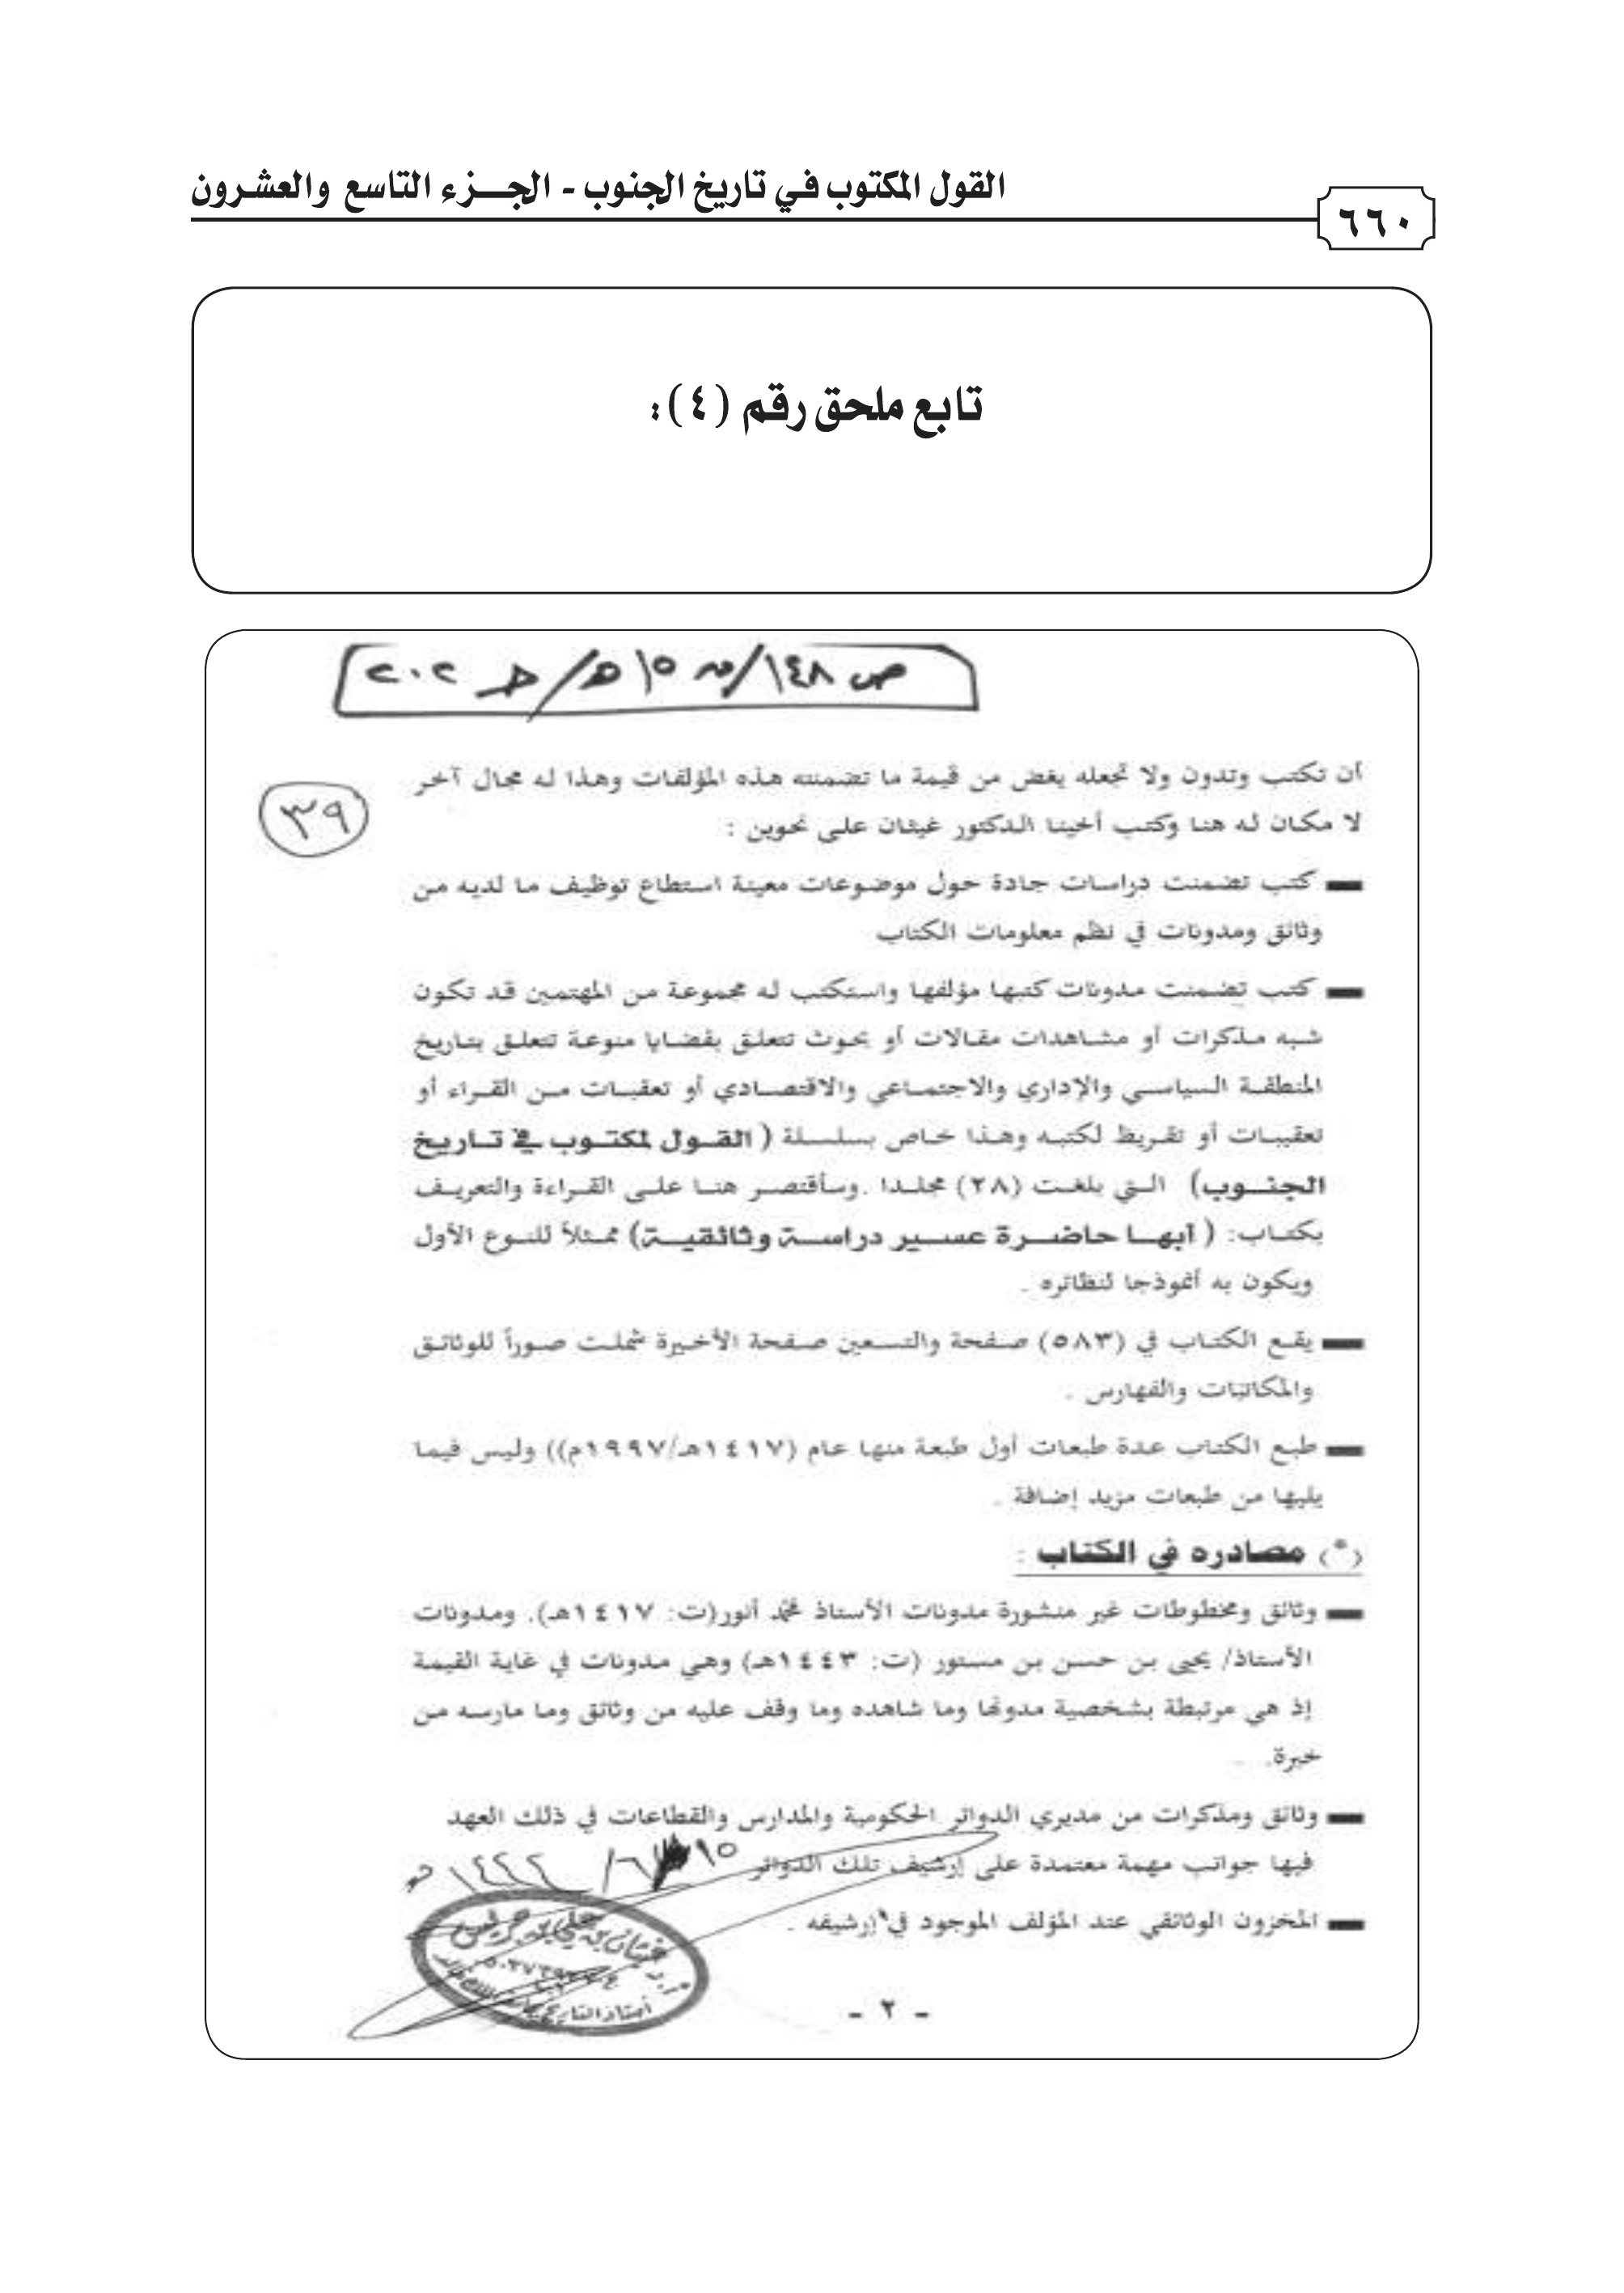 القول المكتوب في تاريخ الجنوب - الجـــزء التاسع والعشرون
٦٦٠
تابع ملحق رقم (٤):
ص ١٤٨/
٣٩
أن تكتب وتدون ولا تجعله يغض من قيمة ما تضمنته هذه المؤلفات وهذا له مجال آخر
لا مكان له هنا وكتب أخينا الدكتور غيثان على نحوين :
كتب تضمنت دراسات جادة حول موضوعات معينة استطاع توظيف ما لديه من
وثائق ومدونات في نظم معلومات الكتاب
كتب تضمنت مدونات كتبها مؤلفها واستكتب له مجموعة من المهتمين قد تكون
شبه مذكرات أو مشاهدات مقالات أو بحوث تتعلق بقضايا منوعة تتعلق بتاريخ
المنطقة السياسي والإداري والاجتماعي والاقتصادي أو تعقبات من القراء أو
تعقيبات أو تقريظ لكتبه وهذا خاص بسلسلة ( القول لمكتوب في تاريخ
الجنوب) التي بلغت (٢٨) مجلدا .وسأقتصر هنا على القراءة والتعريف
بكتاب: ( أبها حاضرة عسير دراسة وثائقية) ممثلاً للنوع الأول
ويكون به أنموذجا لنظائره .
يقع الكتاب في (٥٨٣) صفحة والتسعين صفحة الأخيرة شملت صوراً للوثائق
والمكاتبات والفهارس .
طبع الكتاب عدة طبعات أول طبعة منها عام (١٤١٧هـ/١٩٩٧م)) وليس فيما
يليها من طبعات مزيد إضافة .
(*) مصادره في الكتاب :
وثائق ومخطوطات غير منشورة مدونات الأستاذ محمد أنور(ت: ١٤١٧هـ). ومدونات
الأستاذ/ يحيى بن حسن بن مستور (ت: ١٤٤٣هـ) وهي مدونات في غاية القيمة
إذ هي مرتبطة بشخصية مدونها وما شاهده وما وقف عليه من وثائق وما مارسه من
خبرة.
وثائق ومذكرات من مديري الدوائر الحكومية والمدارس والقطاعات في ذلك العهد
فيها جوانب مهمة معتمدة على إرشيف تلك الدوائر
المخزون الوثائقي عند المؤلف الموجود في إرشيفه .
غيثان بن علي بن جريس
أستاذ التاريخ
- ٢ -